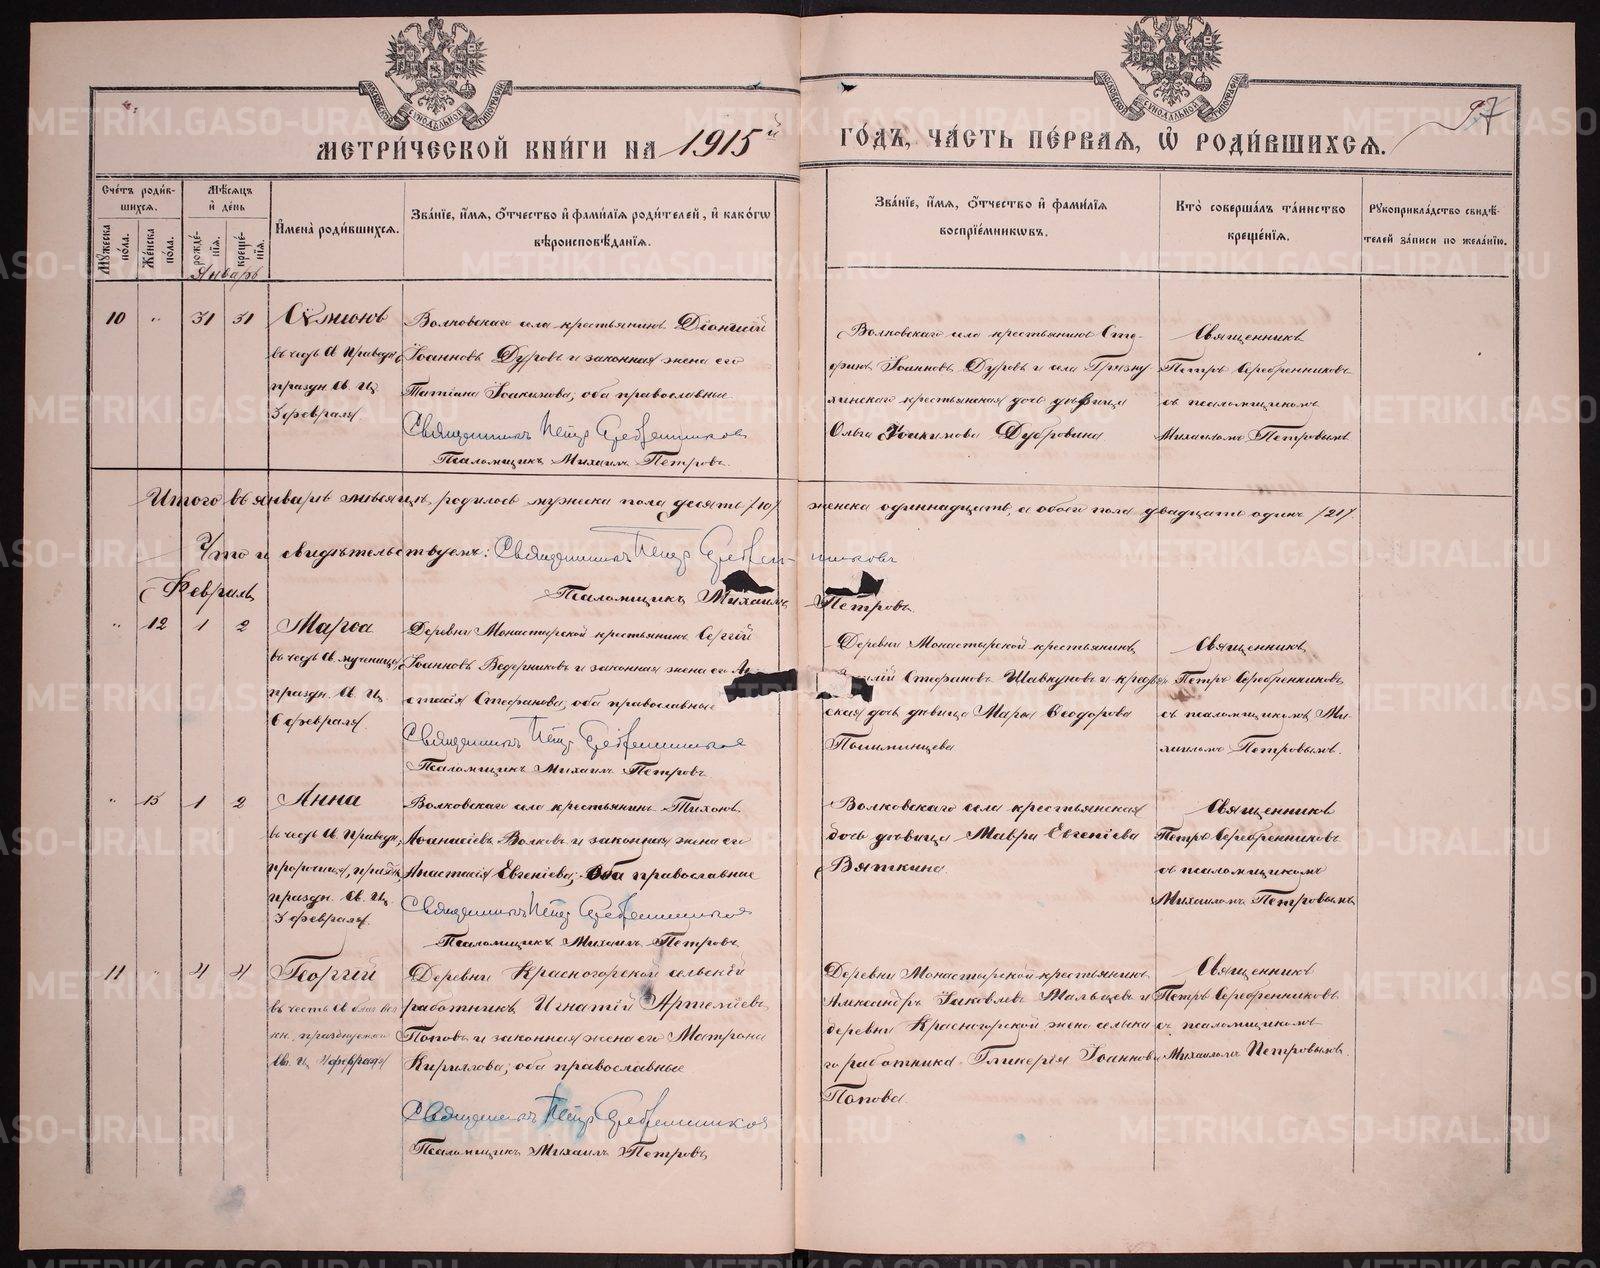 МЕТРИ́ЧЕСКОЙ КНИ́ГИ НА 1915й ГО́ДЪ, ЧА́СТЬ ПЕ́РВАѦ, Ѿ РОДИ́ВШИХСѦ.
97
Сче́тъ роди́в-
шихсѧ.
Мꙋ́жеска по́ла.
Же́нска по́ла.
Мѣ́сѧцъ и҆ де́нь
рожде́-нїѧ.
креще́-нїѧ.
И҆мена̀ роди́вшихсѧ.
Зва́нїе, и҆́мѧ, ѻ҆́тчество и҆ фами́лїѧ роди́телей, и҆ како́гѡ
вѣроисповѣ́данїѧ.
Зва́нїе, и҆́мѧ, ѻ҆́тчество и҆ фами́лїѧ
воспрїе́мникѡвъ.
Кто̀ соверша́лъ та́инство
креще́нїѧ.
Рꙋкоприкла́дство свидѣ́-
телей за́писи по жела́нїю.
Январь
10 " 31 31
Сѵмеонъ
въ честь Св. Праведн.
праздн. Св. Ц.
3 февраля
Волковскаго села крестьянинъ Діонисій
Іоанновъ Дуровъ и законная жена его
Татіана Іоакимова; оба православные
Священникъ Петръ Серебренниковъ
Псаломщикъ Михаилъ Петровъ.
Волковскаго села крестьянинъ Сте-
фанъ Іоанновъ Дуровъ и села Грязну
хинскаго крестьянская дочь дѣвица
Ольга Іоакимова Дубровина
Священникъ
Петръ Серебренниковъ
съ псаломщикомъ
Михаиломъ Петровымъ
Итого въ январѣ мѣсяцѣ родилось мужеска пола десять /10/ женска одиннадцать, а обоего пола двадцать одинъ /21/.
Что и свидѣтельствуемъ: Священникъ Петръ Серебренниковъ
Псаломщикъ Михаилъ Петровъ.
Февраль
" 12 1 2
Марѳа
въ честь Св. мученицы,
праздн. Св. Ц.
6 февраля
Деревни Монастырской крестьянинъ Сергій
Іоанновъ Ведерниковъ и законная жена его
стасія Стефанова; оба православные
Священникъ Петръ Серебренниковъ
Псаломщикъ Михаилъ Петровъ
Деревни Монастырской крестьянинъ
Стефановъ Шавкуновъ и крестьян
ская дочь дѣвица Марѳа Ѳеодорова
Полиминцева
Священникъ
Петръ Серебренниковъ
съ псаломщикомъ Ми-
хаиломъ Петровымъ.
" 13 1 2
Анна
въ честь Св. Праведн.,
пророчицы,
праздн. Св. Ц.
3 февраля
Волковскаго села крестьянинъ Тихонъ
Аѳанасіевъ Волковъ и законная жена его
Анастасія Евгеніева; Оба православные
Священникъ Петръ Серебренниковъ
Псаломщикъ Михаилъ Петровъ
Волковскаго села крестьянская
дочь дѣвица Мавра Евгеніева
Вяткина
Священникъ
Петръ Серебренниковъ
съ псаломщикомъ
Михаиломъ Петровымъ
11 " 4 4
Георгій
въ честь Св. благ. вел.
кн. празднуемаго
Св. Ц. 4 февраля
Деревни Красногорской сельскій
работникъ Игнатій Артеміевъ
Поповъ и законная жена его Матрона
Кириллова; оба православные
Священникъ Петръ Серебренниковъ
Псаломщикъ Михаилъ Петровъ
Деревни Монастырской крестьянинъ
Александръ Іаковлевъ Мальцевъ и
деревни Красногорской жена сельска
го работника Гликерія Іоаннова
Попова.
Священникъ
Петръ Серебренниковъ
съ псаломщикомъ
Михаиломъ Петровымъ.
METRIKI.GASO-URAL.RU